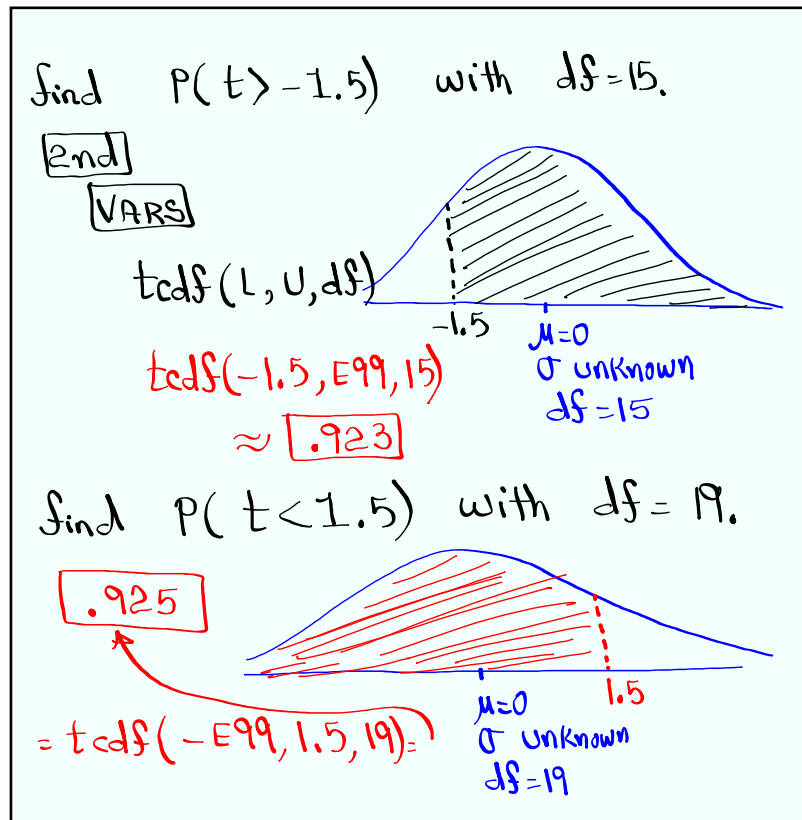 find P(t>-1.5) with df=15.
2nd
VARS
tcdf(L,U,df)
-1.5
μ=0
σ unknown
df=15
tcdf(-1.5,E99,15)
≈ .923
find P(t<1.5) with df=19.
.925
1.5
μ=0
σ unknown
df=19
=tcdf(-E99,1.5,19)=